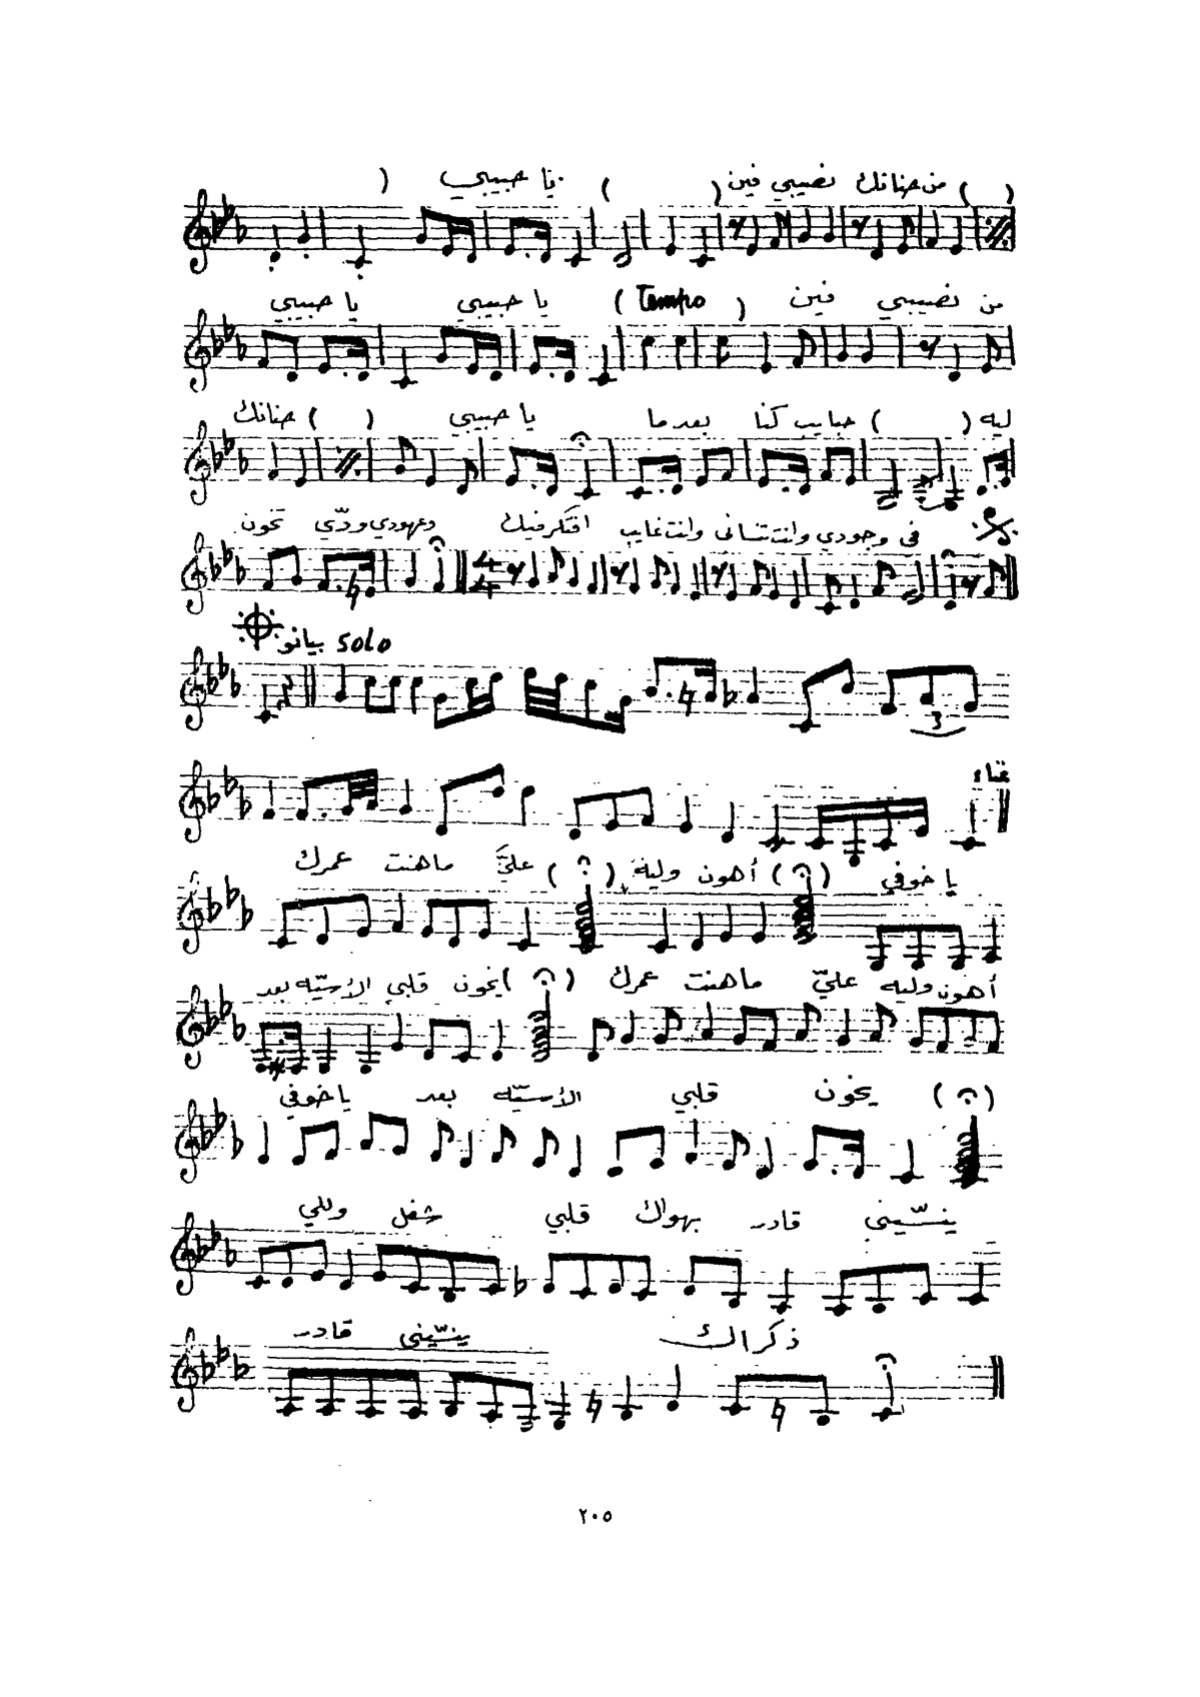 ( ) من حنانك نصيبي فين ( ) يا حبيبي (
من نصيبي فين (Tempo) يا حبيبي يا حبيبي
ليه ( ) حبايب كنا بعد ما يا حبيبي ( ) حنانك
في وجودي وانت تنساني وانت غايب افتكر فيك وعهودي ودّي تخون
بيانو SOLO
غناء
يا خوفي ( ) أهون وليه ( ) عليَّ ما هنت عمرك
أهون وليه عليّ ما هنت عمرك ( ) يخون قلبي الأسيّه بعد
( ) يخون قلبي الأسيّه بعد يا خوفي
ينسّيني قادر بهواك قلبي شغل وللي
ذكراك ينسّيني قادر
٢٠٥